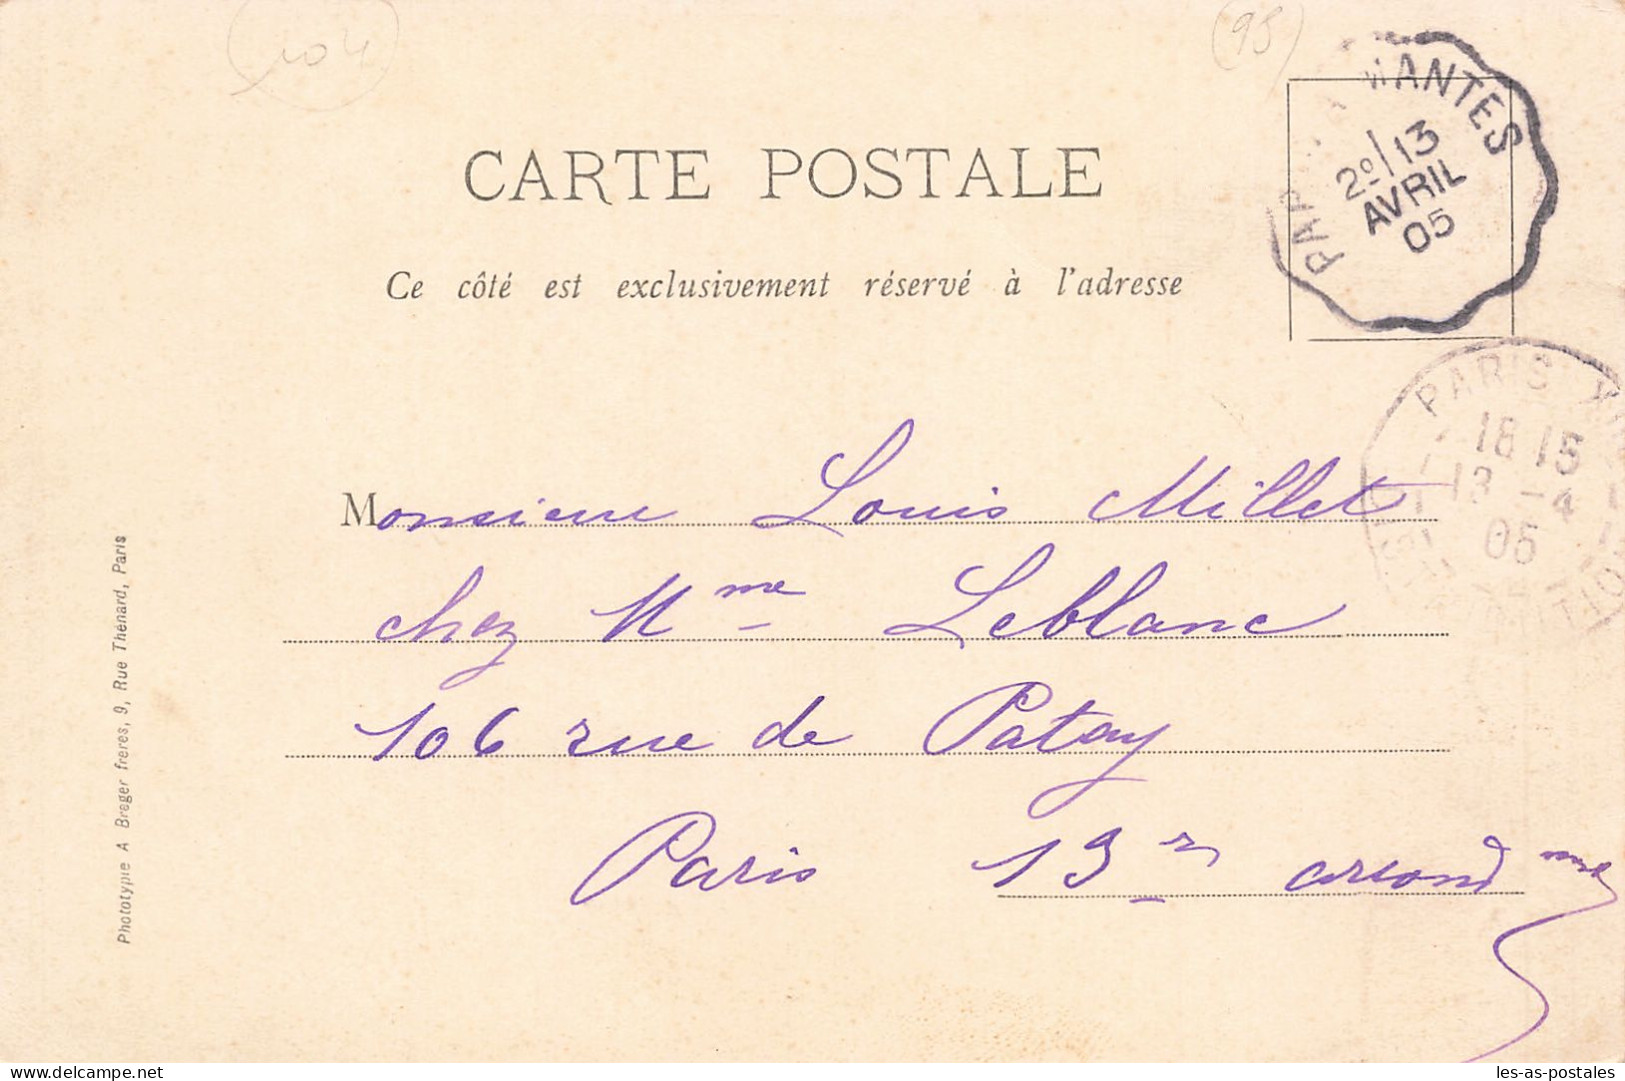 104
(95)
MANTES
2º/13
AVRIL
05
CARTE POSTALE
Ce côté est exclusivement réservé à l'adresse
PARIS
18 15
13 -4
05
Monsieur Louis Millet
chez Mme Leblanc
106 rue de Patay
Paris 13e arrondme
Phototypie A Breger frères, 9, Rue Thénard, Paris
delcampe.net
les-as-postales